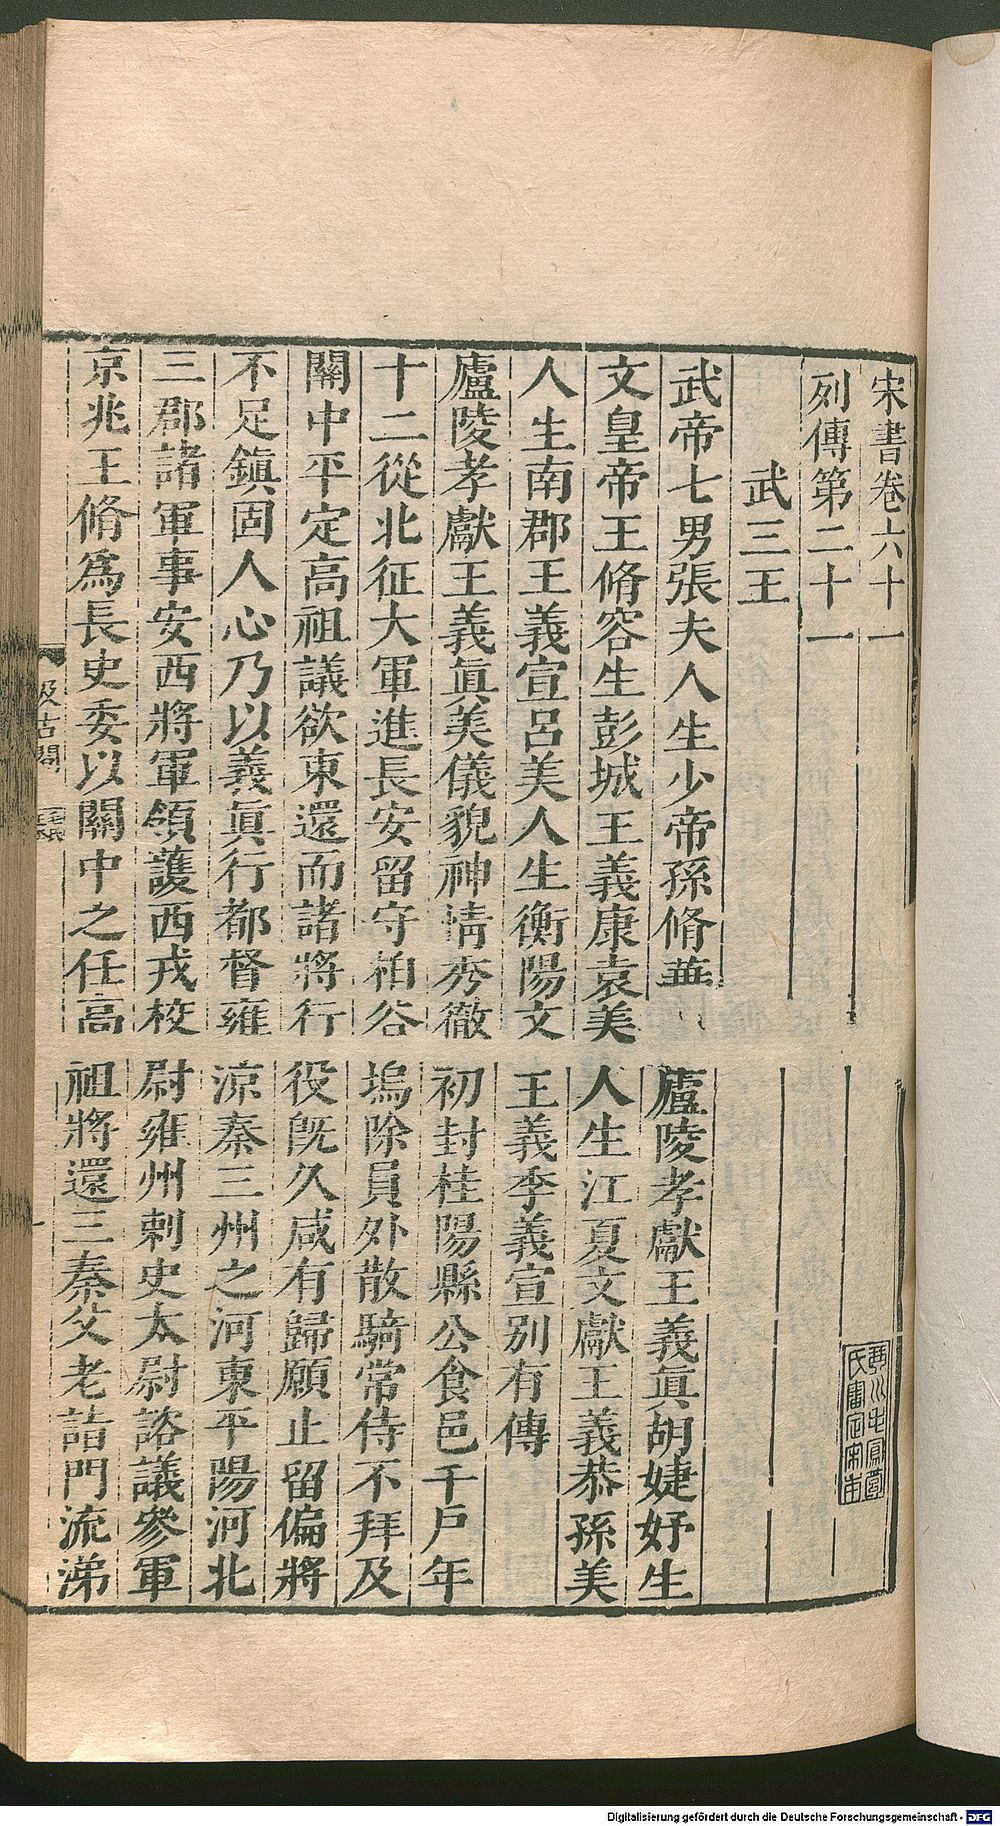 宋書卷六十一
琴川毛鳳苞氏審定宋本
列傳第二十一
武三王
武帝七男張夫人生少帝孫脩華廬陵孝獻王義眞胡婕妤生
文皇帝王脩容生彭城王義康袁美人生江夏文獻王義恭孫美
人生南郡王義宣呂美人生衡陽文王義季義宣別有傳
廬陵孝獻王義眞美儀貌神情秀徹初封桂陽縣公食邑千戶年
十二從北征大軍進長安留守柏谷塢除員外散騎常侍不拜及
關中平定高祖議欲東還而諸將行役旣久咸有歸願止留偏將
不足鎭固人心乃以義眞行都督雍涼秦三州之河東平陽河北
三郡諸軍事安西將軍領護西戎校尉雍州刺史太尉諮議參軍
京兆王脩爲長史委以關中之任高祖將還三秦父老詣門流涕
汲古閣
Digitalisierung gefördert durch die Deutsche Forschungsgemeinschaft - DFG